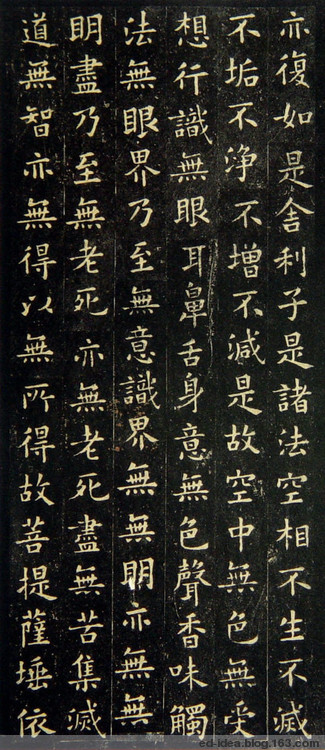 亦復如是舍利子是諸法空相不生不滅
不垢不浄不增不減是故空中無色無受
想行識無眼耳鼻舌身意無色聲香味觸
法無眼界乃至無意識界無無明亦無無
明盡乃至無老死亦無老死盡無苦集滅
道無智亦無得以無所得故菩提薩埵依
ed-idea.blog.163.com